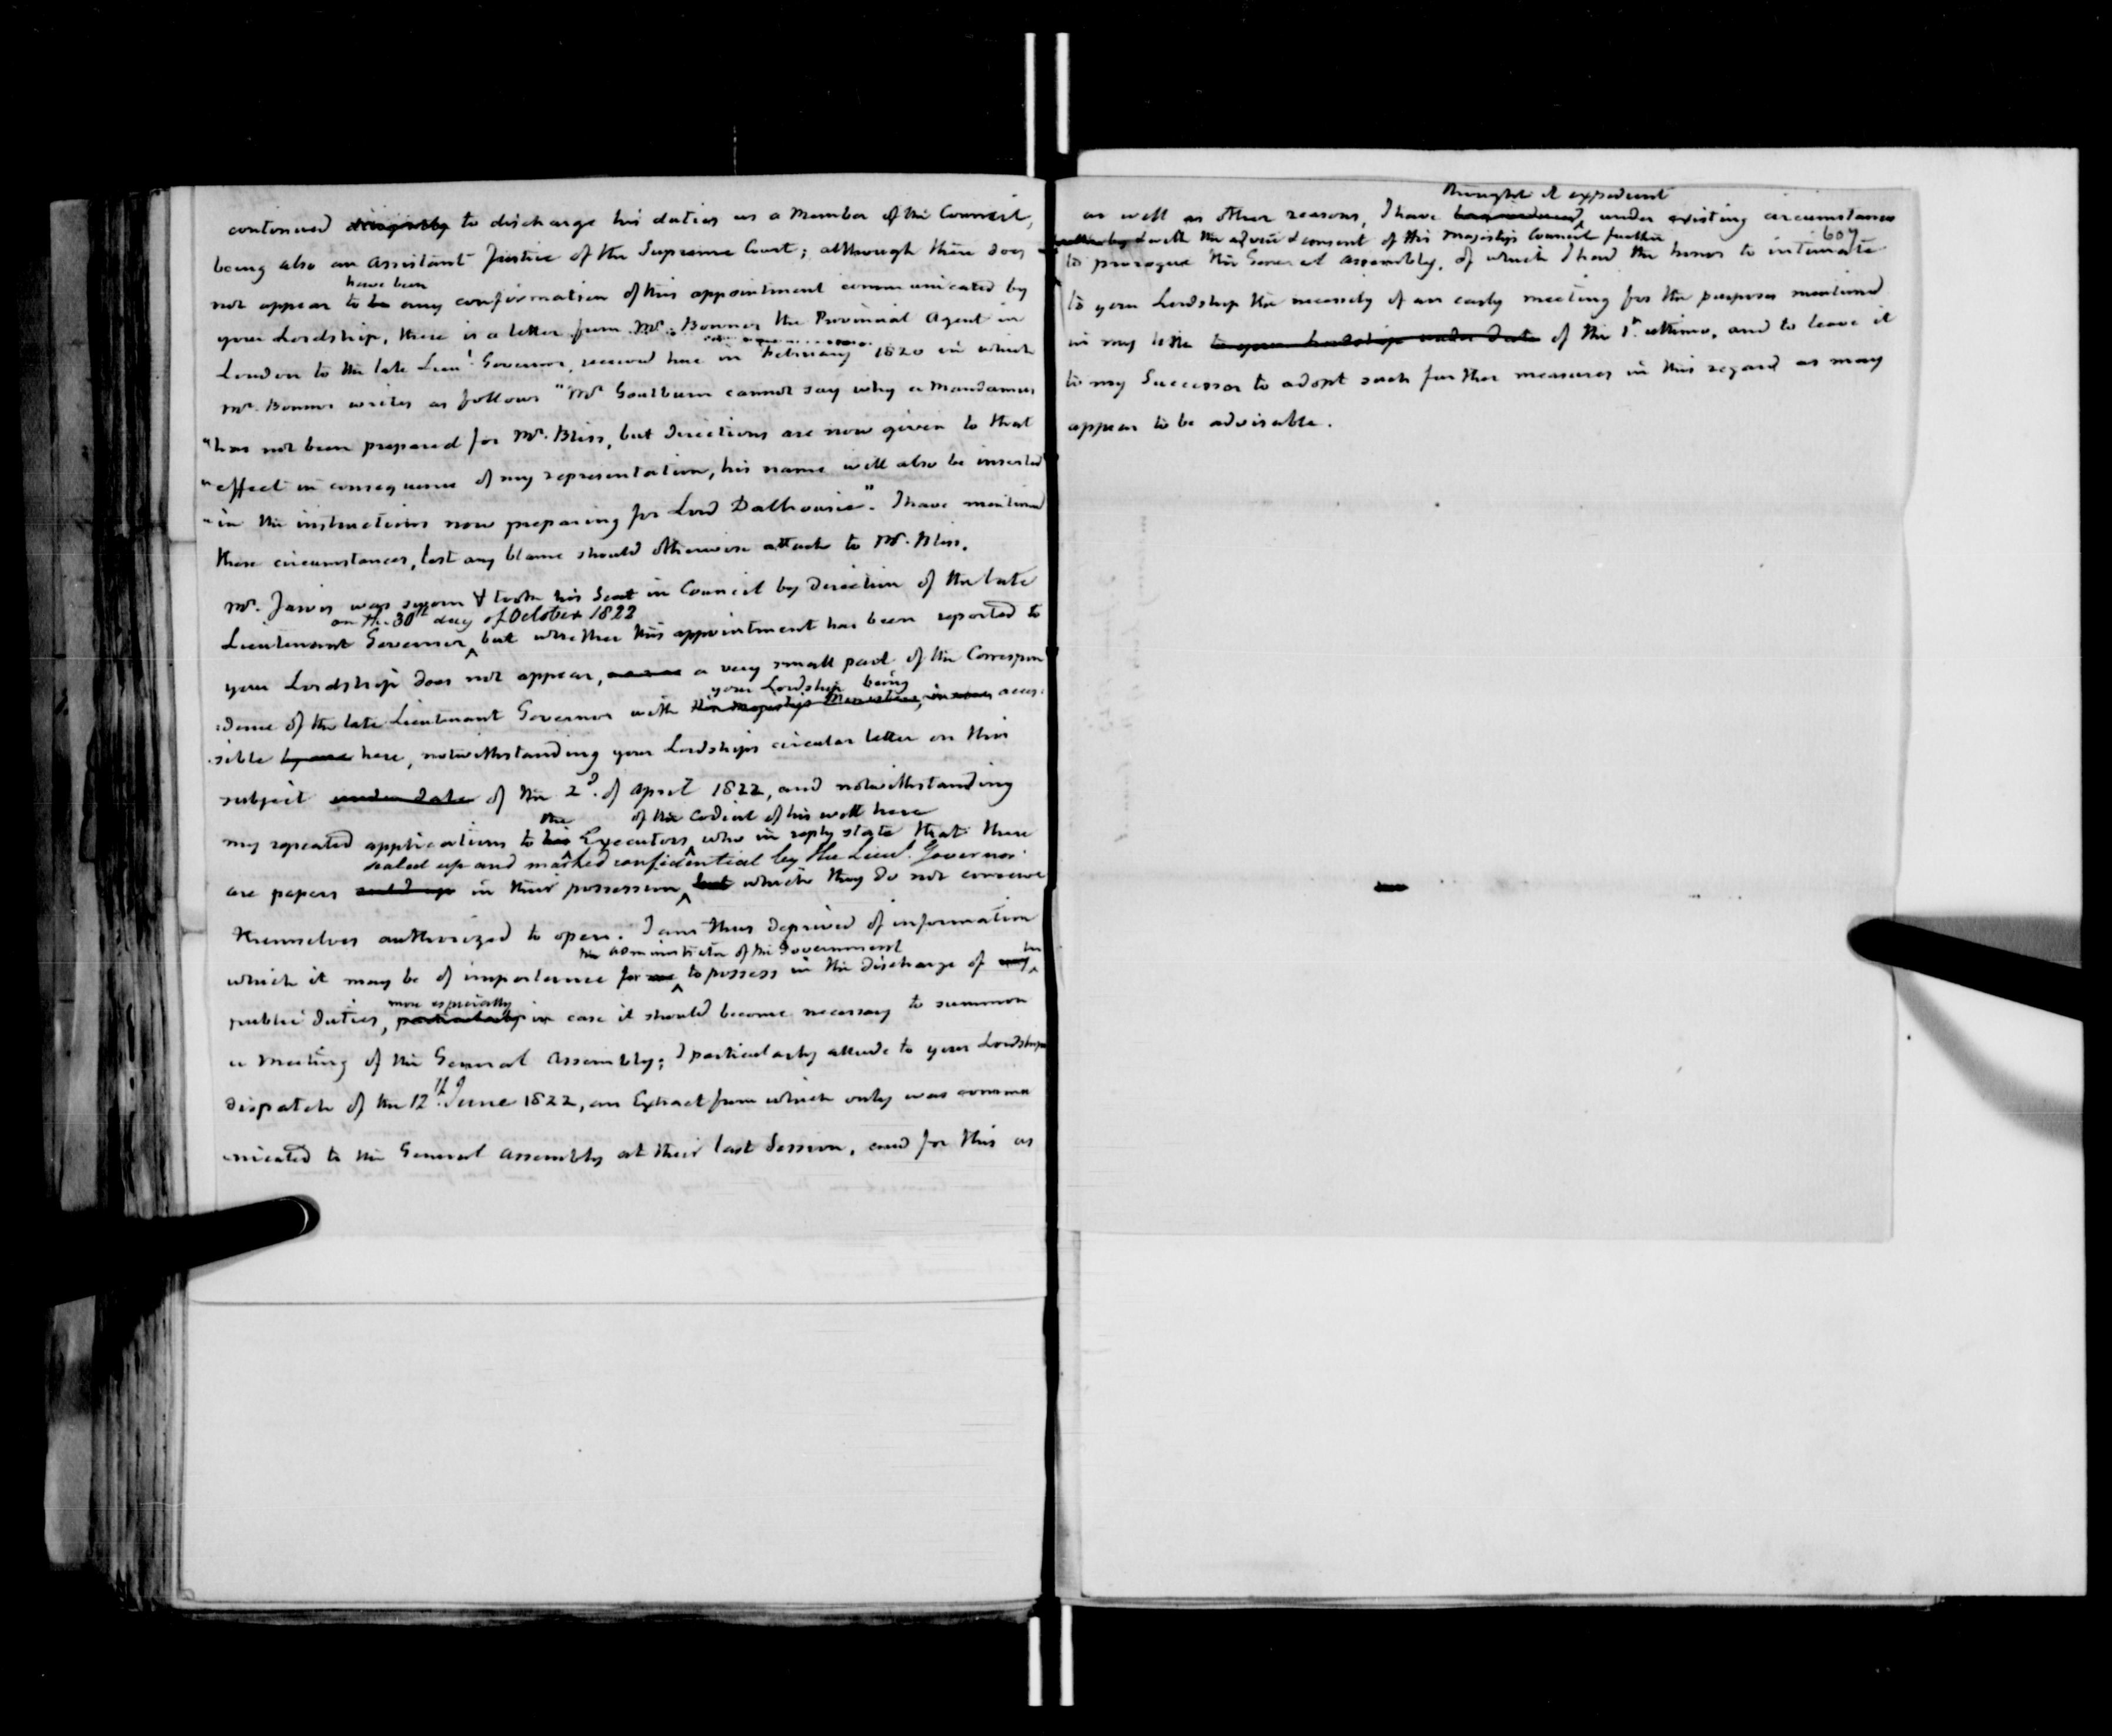 continued to discharge his duties as a Member of the Council,
being also an Assistant Justice of the Supreme Court; although there does
have been
not appear to be any confirmation of this appointment communicated by
your Lordship, there is a letter from Mr. Bonner the Provincial Agent in
London to the late Lieut. Governor, received here in February 1820 in which
Mr. Bonner writes as follows "Mr. Goulburn cannot say why a Mandamus
"has not been prepared for Mr. Bliss, but directions are now given to that
"effect in consequence of my representation, his name will also be inserted
"in the instructions now preparing for Lord Dalhousie". I have mentioned
these circumstances, lest any blame should otherwise attach to Mr. Bliss.
Mr. Jarvis was sworn & took his Seat in Council by direction of the late
on the 30th day of October 1822
Lieutenant Governor, but whether this appointment has been reported to
your Lordship does not appear, a very small part of the Correspon
your Lordship being
:dence of the late Lieutenant Governor with His Majesty's Ministers, acces:
:sible here, notwithstanding your Lordships circular letter on this
subject under date of the 2d. of April 1822, and notwithstanding
the of the Codicil of his will here
my repeated applications to his Executors, who in reply state that there
sealed up and marked confidential by the Lieut. Governor
are papers sealed up in their possession, but which they do not conceive
themselves authorized to open. I am thus deprived of information
the administrator of the Government his
which it may be of importance for me to possess in the discharge of my
more especially
public duties, particularly in case it should become necessary to summon
a Meeting of the General Assembly; I particularly allude to your Lordships
dispatch of the 12th June 1822, an Extract from which only was commu
:nicated to the General Assembly at their last Session, and for this as
thought it expedient
as well as other reasons, I have under existing circumstances
& with the advice & consent of His Majesty's Council further
607
to prorogue the General Assembly, of which I had the honor to intimate
to your Lordship the necessity of an early meeting for the purposes mentioned
in my letter to your Lordship under date of the 1st. ultimo, and to leave it
to my Successor to adopt such further measures in this regard as may
appear to be advisable.